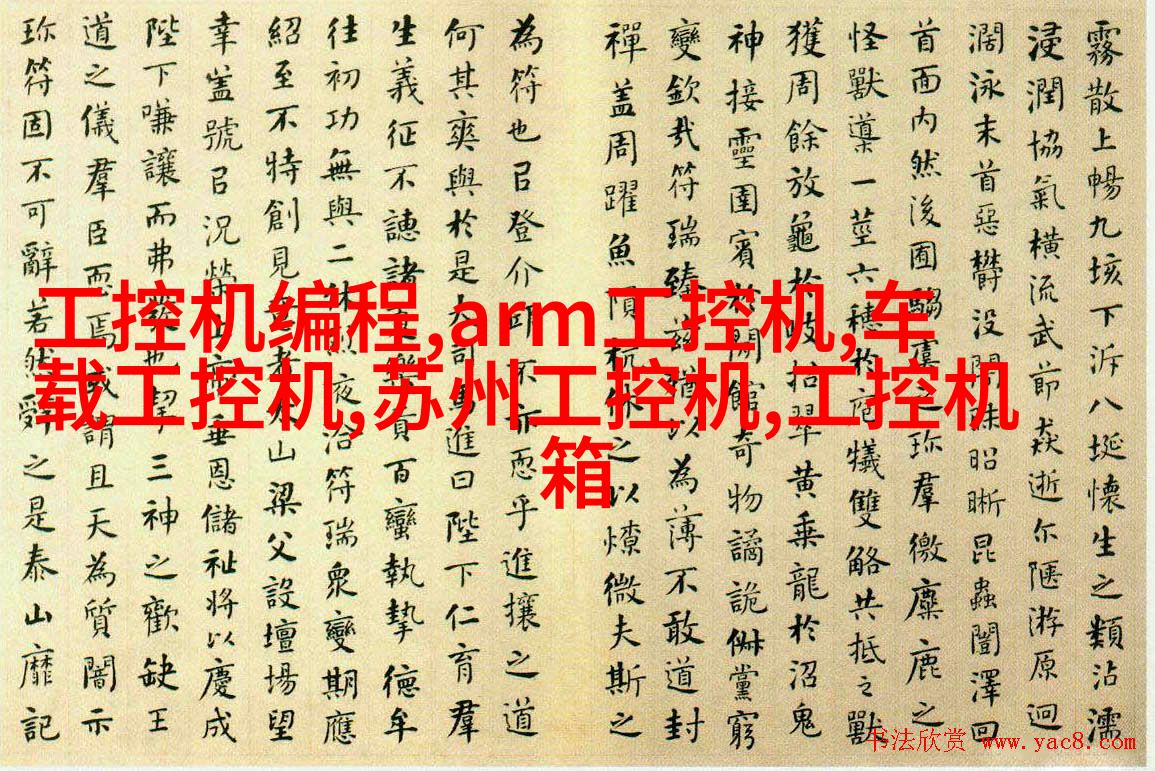 工控机编程,arm工控机,车
载工控机,苏州工控机,工控机
箱
霧散上暢九垓下泝八埏懷生之類沾濡
浸潤協氣橫流武節猋逝尔陿游原迥
濶泳末首惡欝没闇昧昭晰昆蟲闓澤回
首面内然後囿騶虞之珎羣徼麋鹿之
怪獸導一莖六穗於庖犧雙觡共抵之獸
獲周餘放龜於岐招翠黄乗龍於沼鬼
神接靈圉賓於閒館奇物譎詭俶黨窮
變欽㦲符瑞臻兹猶以為薄不敢道封
禪盖周躍魚隕杭休之以燎微夫斯之
為符也㠯登介邱不亦恧乎進攘之道
何其爽與於是大司馬進曰陛下仁育羣
生義征不譓諸夏樂貢百蠻執摯德牟
往初功無與二休烈夜洽符瑞衆變期應
紹至不特創見意者太山梁父設壇場望
幸盖號㠯况榮上帝垂恩儲祉将以慶成
陛下嗛讓而弗發也挈三神之歡缺王
道之儀羣臣恧焉或謂且天為質闇示
珎符固不可辭若然辭之是泰山靡記
书法欣赏 www.yac8.com